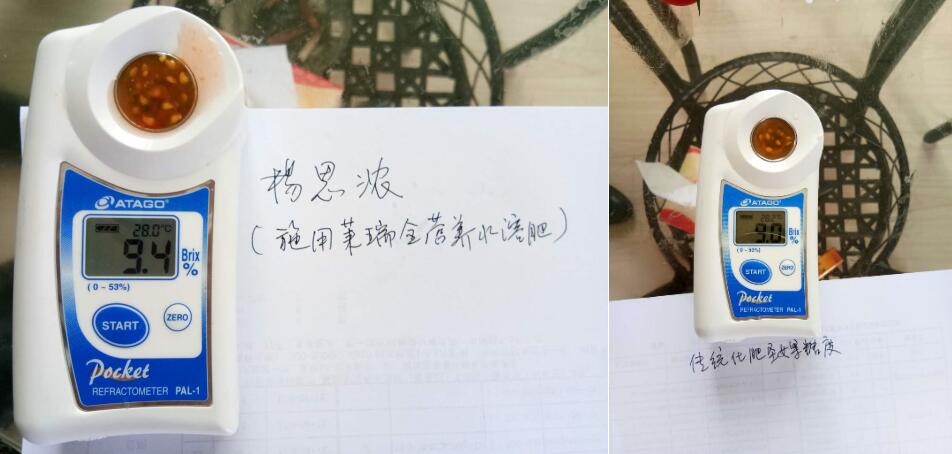 ATAGO®
28.0℃
9.4
Brix
%
(0-53%)
START
ZERO
Pocket
REFRACTOMETER PAL-1
杨思浓
(施用莱瑞全营养水溶肥)
ATAGO®
28.2℃
9.0
Brix
%
(0-53%)
START
ZERO
Pocket
REFRACTOMETER PAL-1
传统化肥圣女果糖度